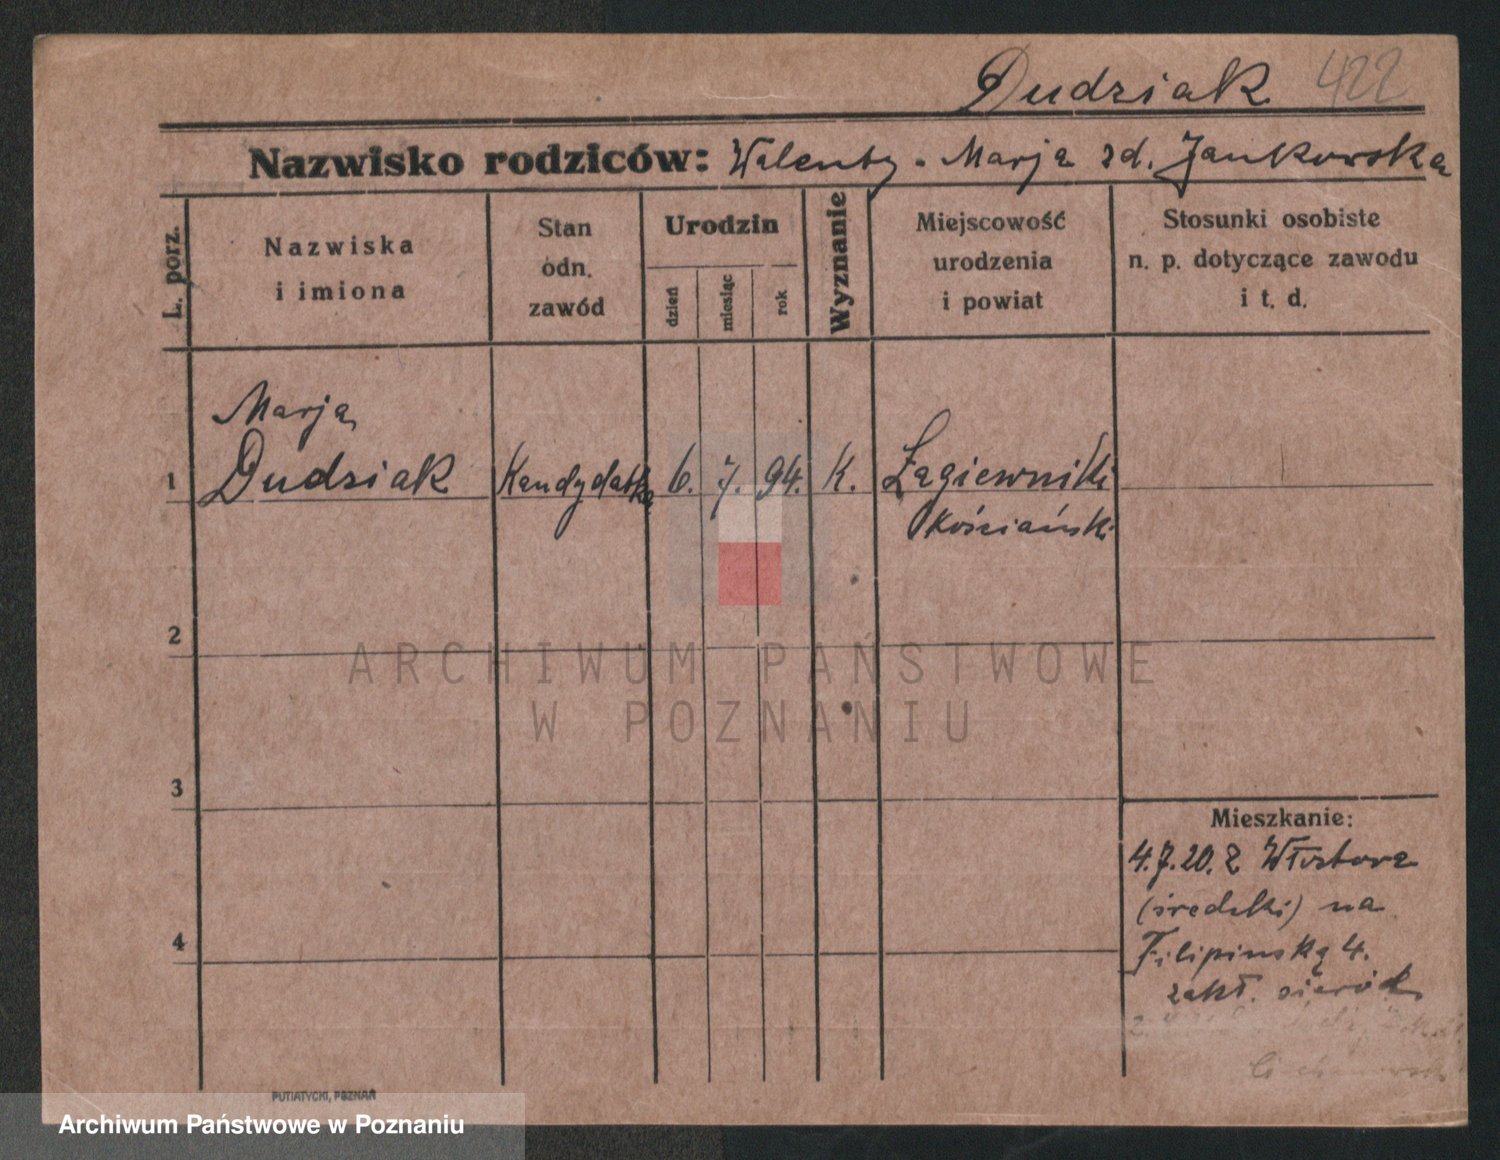 Dudziak 422
Nazwisko rodziców: Walenty - Marja zd. Jankowska
L. porz.
Nazwiska
i imiona
Stan
odn.
zawód
Urodzin
dzień
miesiąc
rok
Wyznanie
Miejscowość
urodzenia
i powiat
Stosunki osobiste
n. p. dotyczące zawodu
i t. d.
Marja
1 Dudziak Kandydatka 6. 7. 94. K. Łagiewniki
Kościański
2
ARCHIWUM PAŃSTWOWE
W POZNANIU
3
Mieszkanie:
4.7.20. z
(średzki) na
4 Filipińską 4.
zakł. sierót
PUTIATYCKI, POZNAŃ
Archiwum Państwowe w Poznaniu